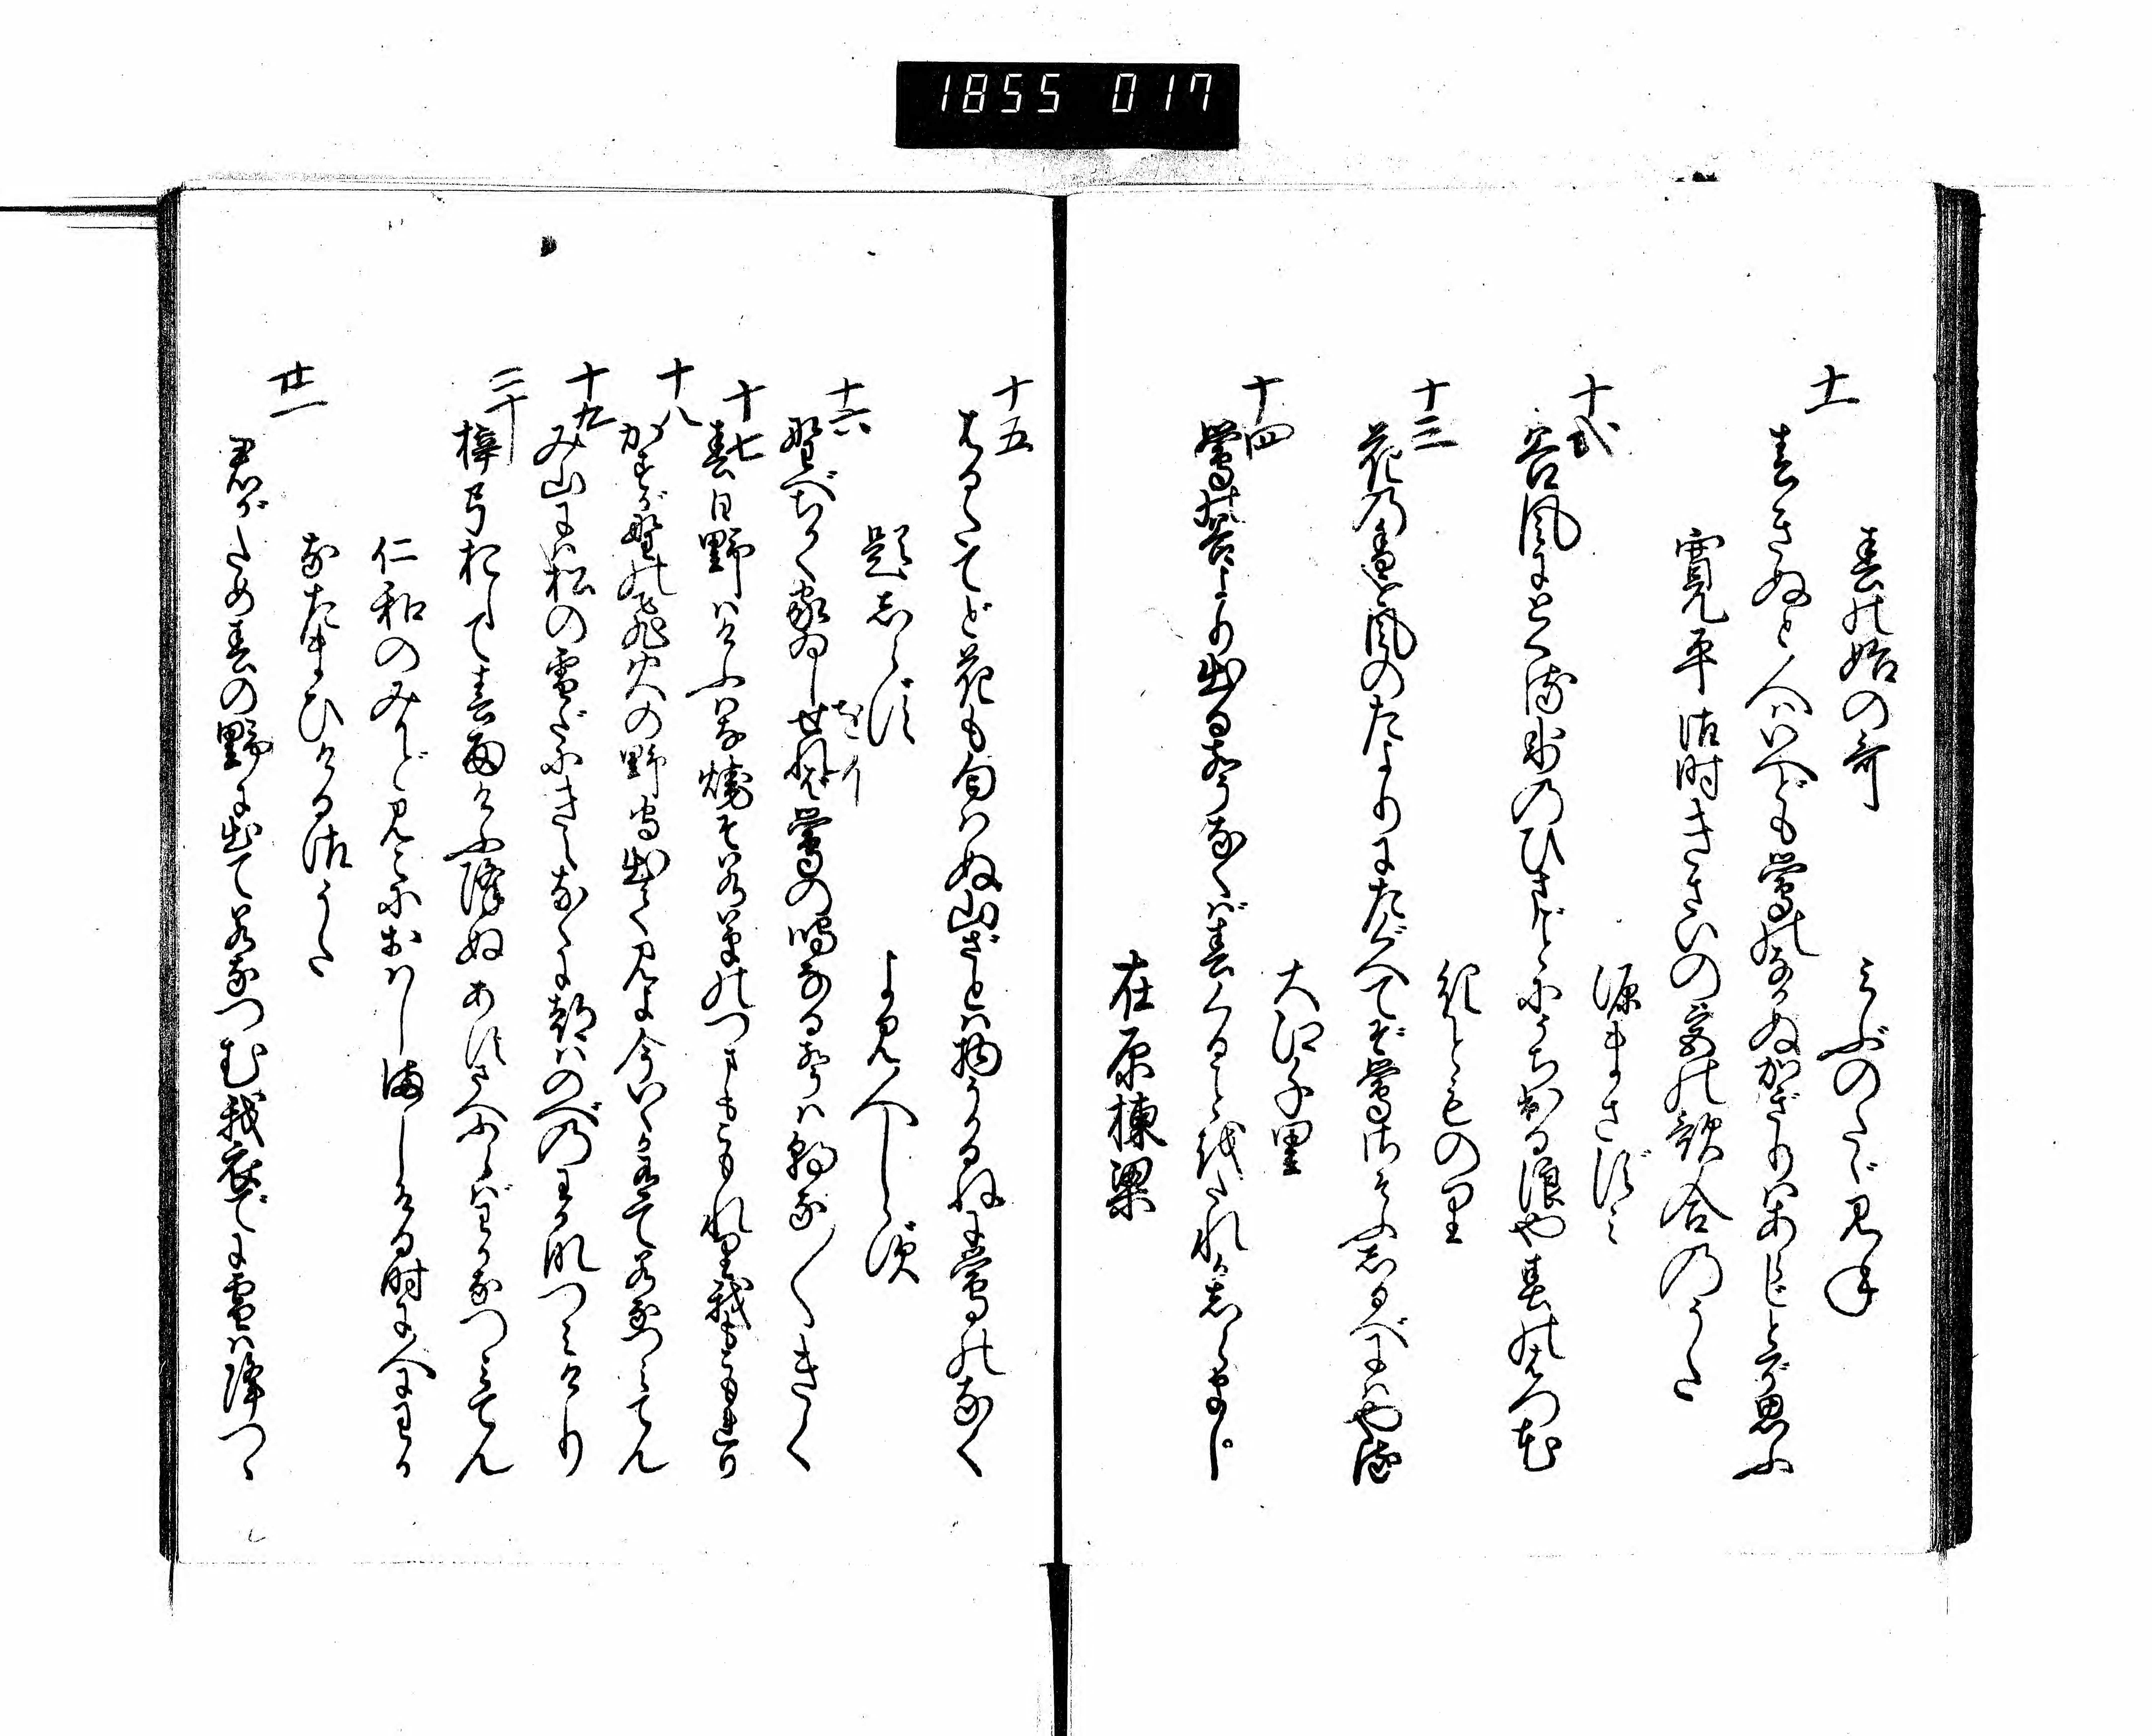 1855 017
春の始の哥　みぶのたゞみね
十一
春きぬと人はいへども鶯のなかぬかぎりはあらじとぞ思ふ
寛平御時きさいの宮の歌合のうた
源まさずミ
十弐
谷風にとくる氷のひまごとにうち出る浪や春の花
紀とものり
十三
花乃香を風のたよりにたぐへてぞ鶯さそふしるべにはやる
大江千里
十四
鶯の谷より出る聲なくば春くることをたれかしらまし
在原棟梁
十五
はるたてど花も匂ハぬ山ざとは物うかるねに鶯のなく
題しらず　よみ人しらず
十六
野べちかく家ゐしせれば鶯の鳴なる聲ハ朝な〱きく
をりイ
十七
春日野ハけふハな焼そ若草のつまもこもれり我もこもれり
十八
かすが野の飛火の野守出て見よ今いくか有て若なつミてん
十九
み山にハ松の雪だにきえなくに都ハのべ乃わかなつミけり
二十
梓弓おして春雨けふ降ぬあすさへふらばわかなつミてん
仁和のみかどみこにおハしましける時に人にわか
なたまひける御うた
廿一
君がため春の野に出て若なつむ我衣でに雪ハ降つゝ